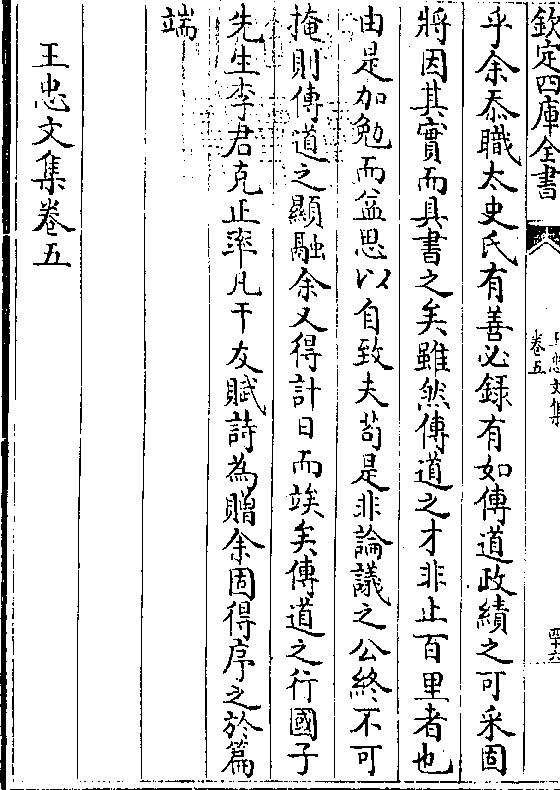 欽定四庫全書
王忠文集
卷五
四十六
乎余忝職太史氏有善必録有如傳道政績之可采固
將因其實而具書之矣雖然傳道之才非止百里者也
由是加勉而益思以自致夫苟是非論議之公終不可
掩則傳道之顯融余又得計日而竢矣傳道之行國子
先生李君克正率凡干友賦詩為贈余固得序之於篇
端
王忠文集卷五